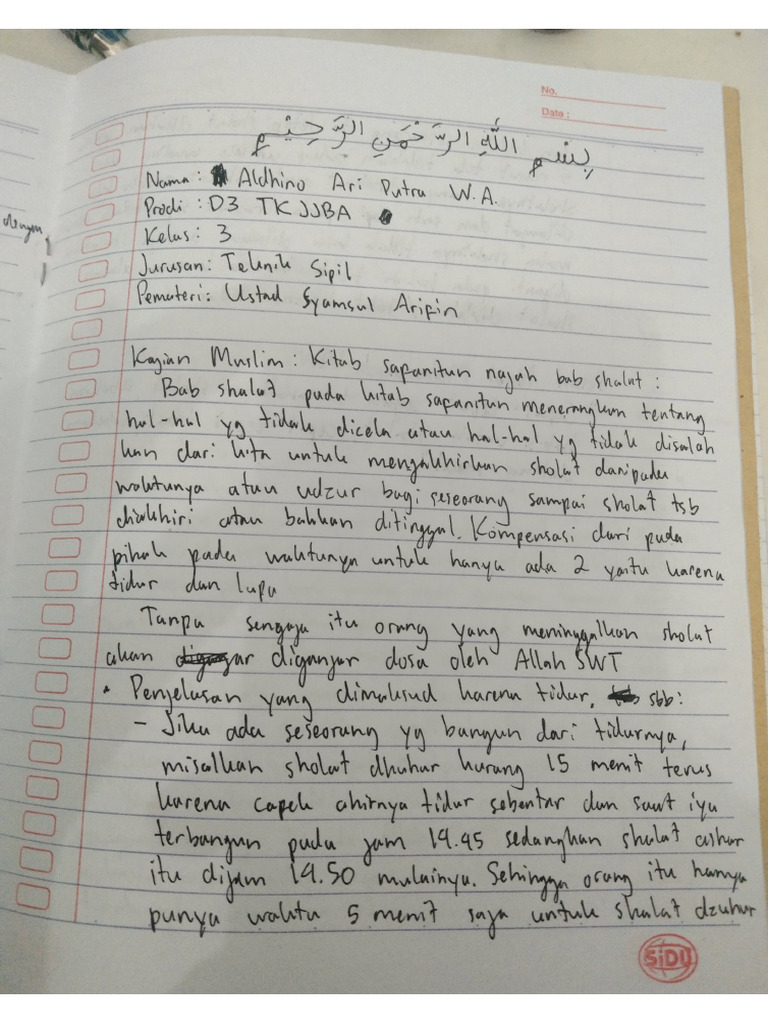 No.
Date :
بِسْمِ اللَّهِ الرَّحْمَنِ الرَّحِيْمِ
Nama : Aldhino Ari Putra W.A.
Prodi : D3 TK JJBA
Kelas : 3
Jurusan : Teknik Sipil
Pemateri : Ustad Syamsul Aripin
dengan
Kajian Muslim : Kitab safanitun najah bab shalat :
Bab shalat pada kitab safanitun menerangkan tentang
hal-hal yg tidak dicela atau hal-hal yg tidak disalah
kan dari kita untuk mengakhirkan sholat daripada
waktunya atau udzur bagi seseorang sampai sholat tsb
diakhiri atau bahkan ditinggal. Kompensasi dari pada
pihak pada waktunya untuk hanya ada 2 yaitu karena
tidur dan lupa
Tanpa sengaja itu orang yang meninggalkan sholat
akan diganjar dosa oleh Allah SWT
• Penjelasan yang dimaksud karena tidur, sbb:
- Jika ada seseorang yg bangun dari tidurnya,
misalkan sholat dhuhur kurang 15 menit terus
karena capek ahirnya tidur sebentar dan saat iya
terbangun pada jam 14.45 sedangkan shalat ashar
itu dijam 14.50 mulainya. Sehingga orang itu hanya
punya waktu 5 menit saja untuk shalat dzuhur
SiDU